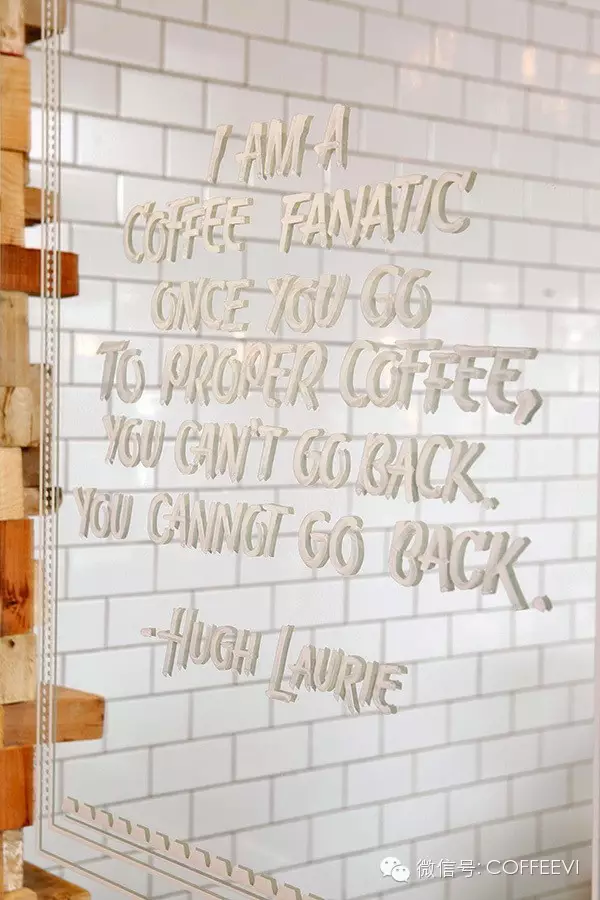 I AM A
COFFEE FANATIC
ONCE YOU GO
TO PROPER COFFEE,
YOU CAN'T GO BACK.
YOU CANNOT GO BACK.
-HUGH LAURIE
微信号: COFFEEVI